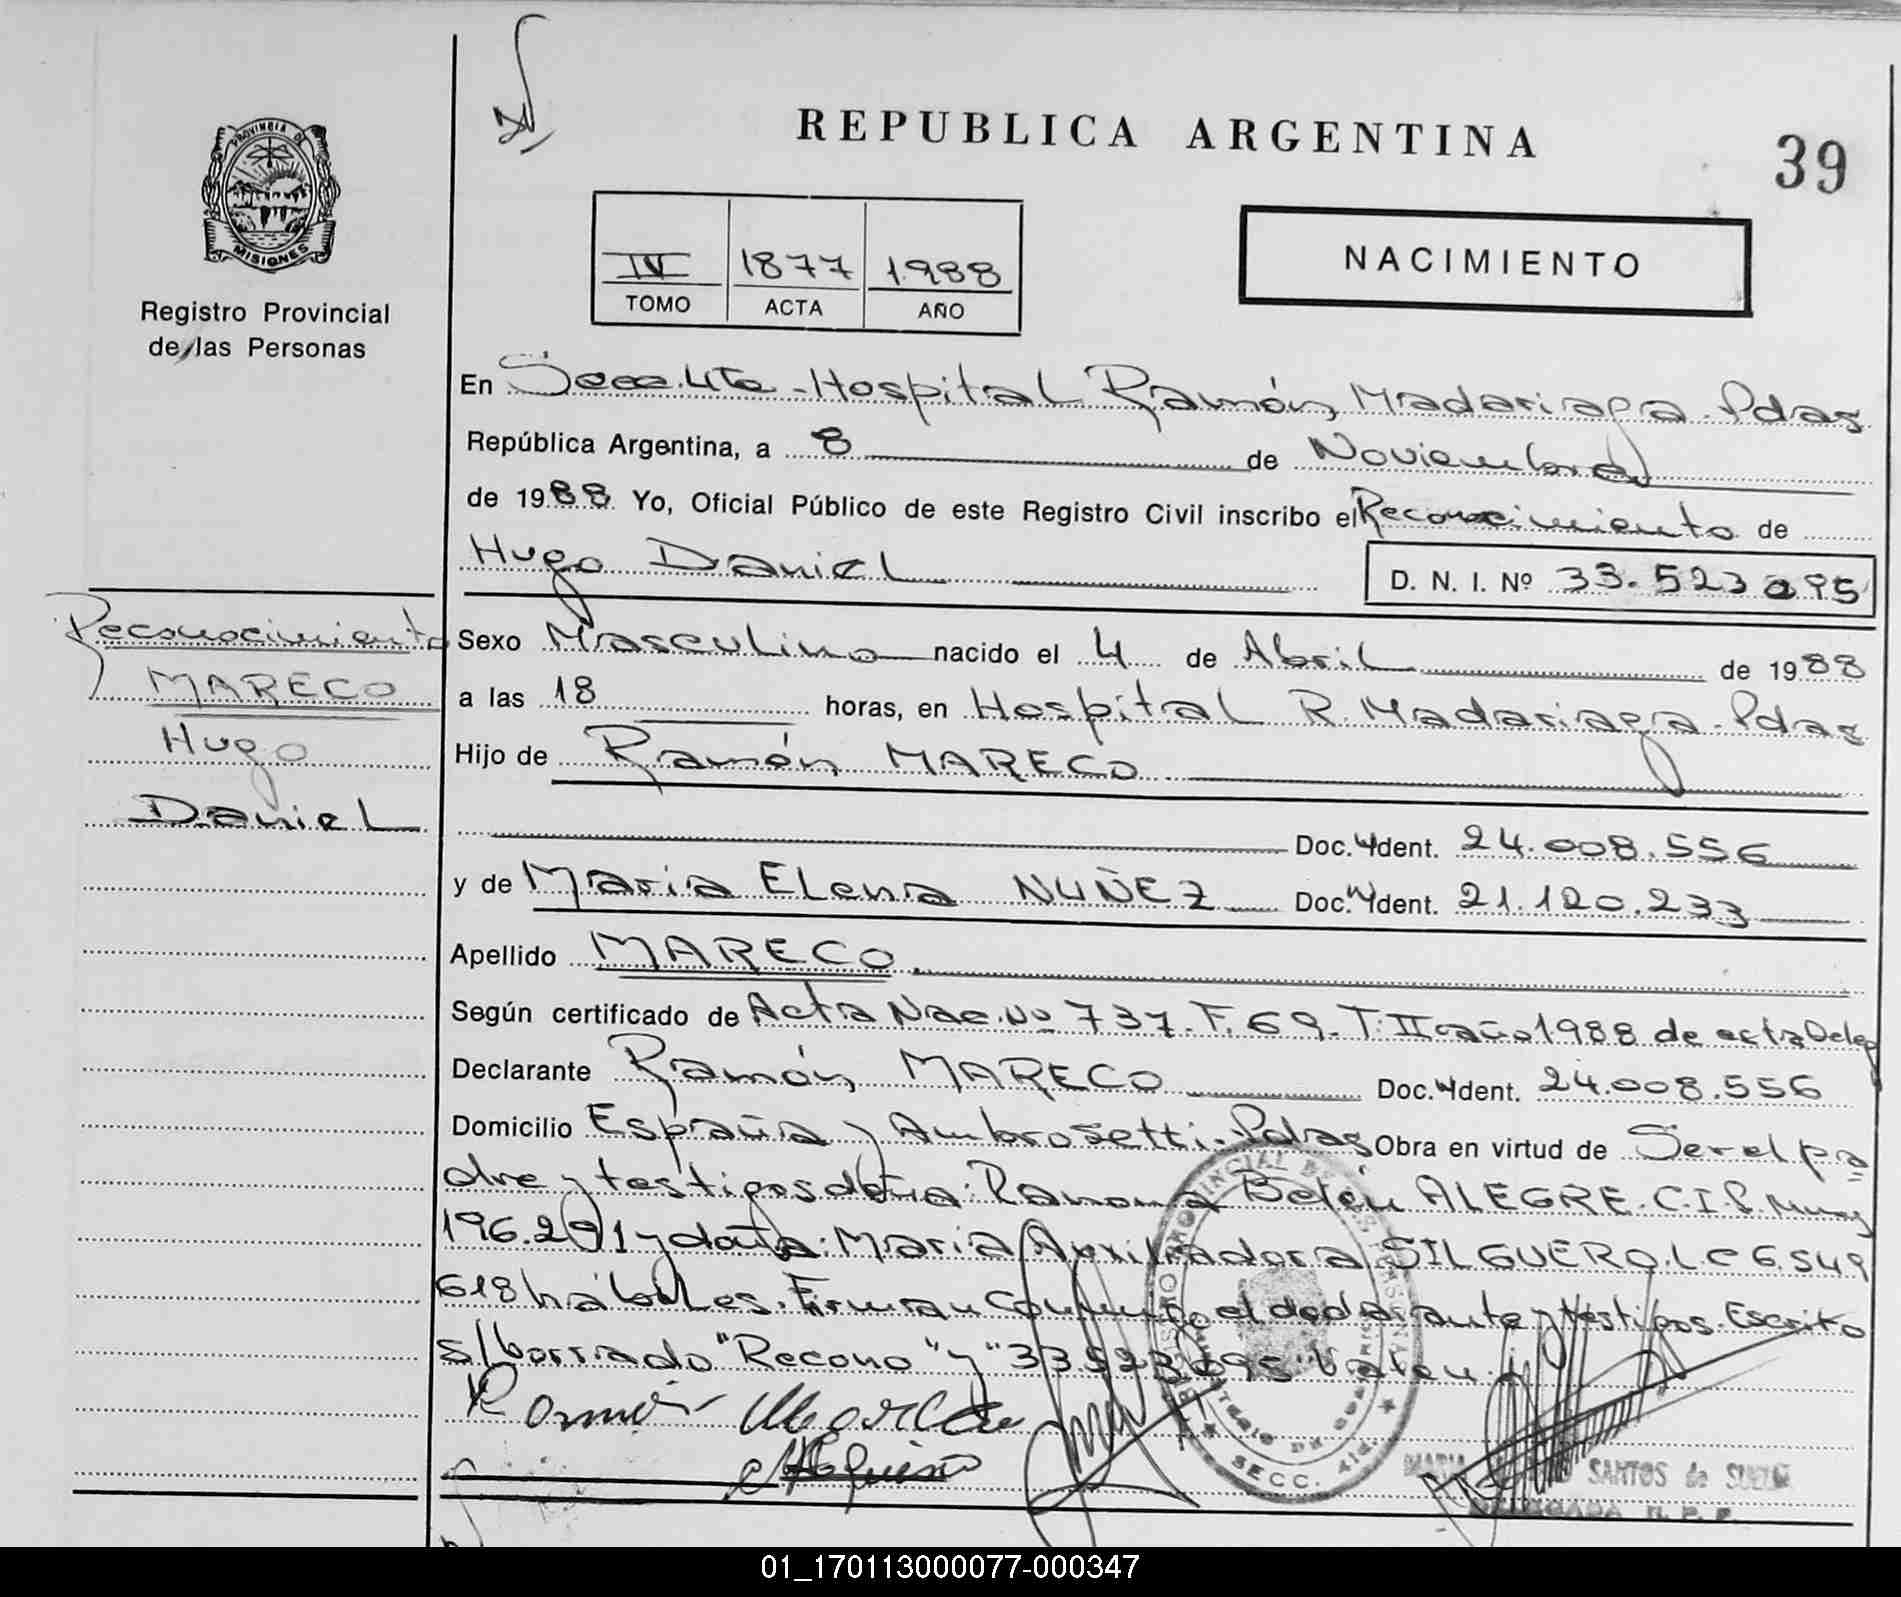 REPUBLICA ARGENTINA
39
PROVINCIA DE
MISIONES
Registro Provincial
de las Personas
IV 1877 1988
TOMO ACTA AÑO
NACIMIENTO
En Secc. 4ta - Hospital Ramón Madariaga - Pdas
República Argentina, a 8 de Noviembre
de 1988 Yo, Oficial Público de este Registro Civil inscribo el Reconocimiento de
Hugo Daniel
D. N. I. Nº 33.523 095
Reconocimiento
MARECO
Hugo
Daniel
Sexo Masculino nacido el 4 de Abril de 1988
a las 18 horas, en Hospital R. Madariaga - Pdas
Hijo de Ramón MARECO
Doc. Ident. 24.008.556
y de Maria Elena NUÑEZ Doc. Ident. 21.120.233
Apellido MARECO
Según certificado de Acta Nac. Nº 737. F. 69. T. II año 1988 de esta Deleg
Declarante Ramón MARECO Doc. Ident. 24.008.556
Domicilio España y Ambrosetti - Pdas Obra en virtud de Ser el pa
dre y testigos doña: Ramona Belén ALEGRE. C.I.P. Mnes
196.291 y doña: Maria Auxiliadora SILGUERO. L.C 6.549
618 hábiles. Firman conmigo el declarante y testigos. Escrito
s/borrado "Recono" y "33.523 095" Valen
SECC. 4ta.
SANTOS de
01_170113000077-000347